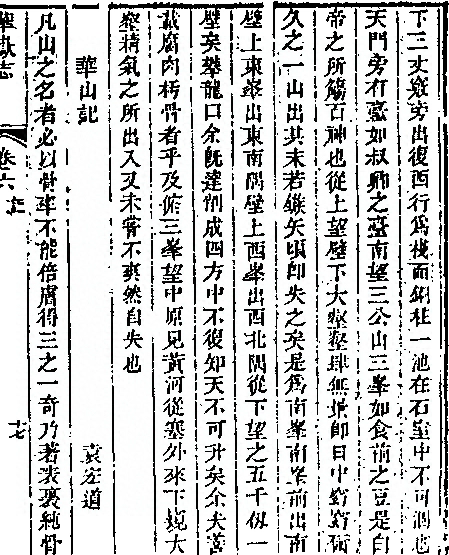 下三丈竅旁出復西行爲棧而銅柱一池在石室中不可涸也
天門旁有臺如叔卿之臺南望三公山三峯如食前之豆是白
帝之所觴百神也從上望壁下大壑壑肆無景卽日中窈窈爾
久之一山出其末若鏃矢頃卽失之矣是爲南峯南峯前出南
壁上東峯出東南隅壁上西峯出西北隅從下望之五千仞一
壁矣攀龍口余旣達削成四方中不復知天不可升矣余夫善
載腐肉朽骨者乎及俯三峯望中原見黃河從塞外來下窺大
壑精氣之所出入又未嘗不爽然自失也
華山記 袁宏道
凡山之名者必以骨率不能倍膚得三之一奇乃著表裏純骨
華嶽志 卷六 十七